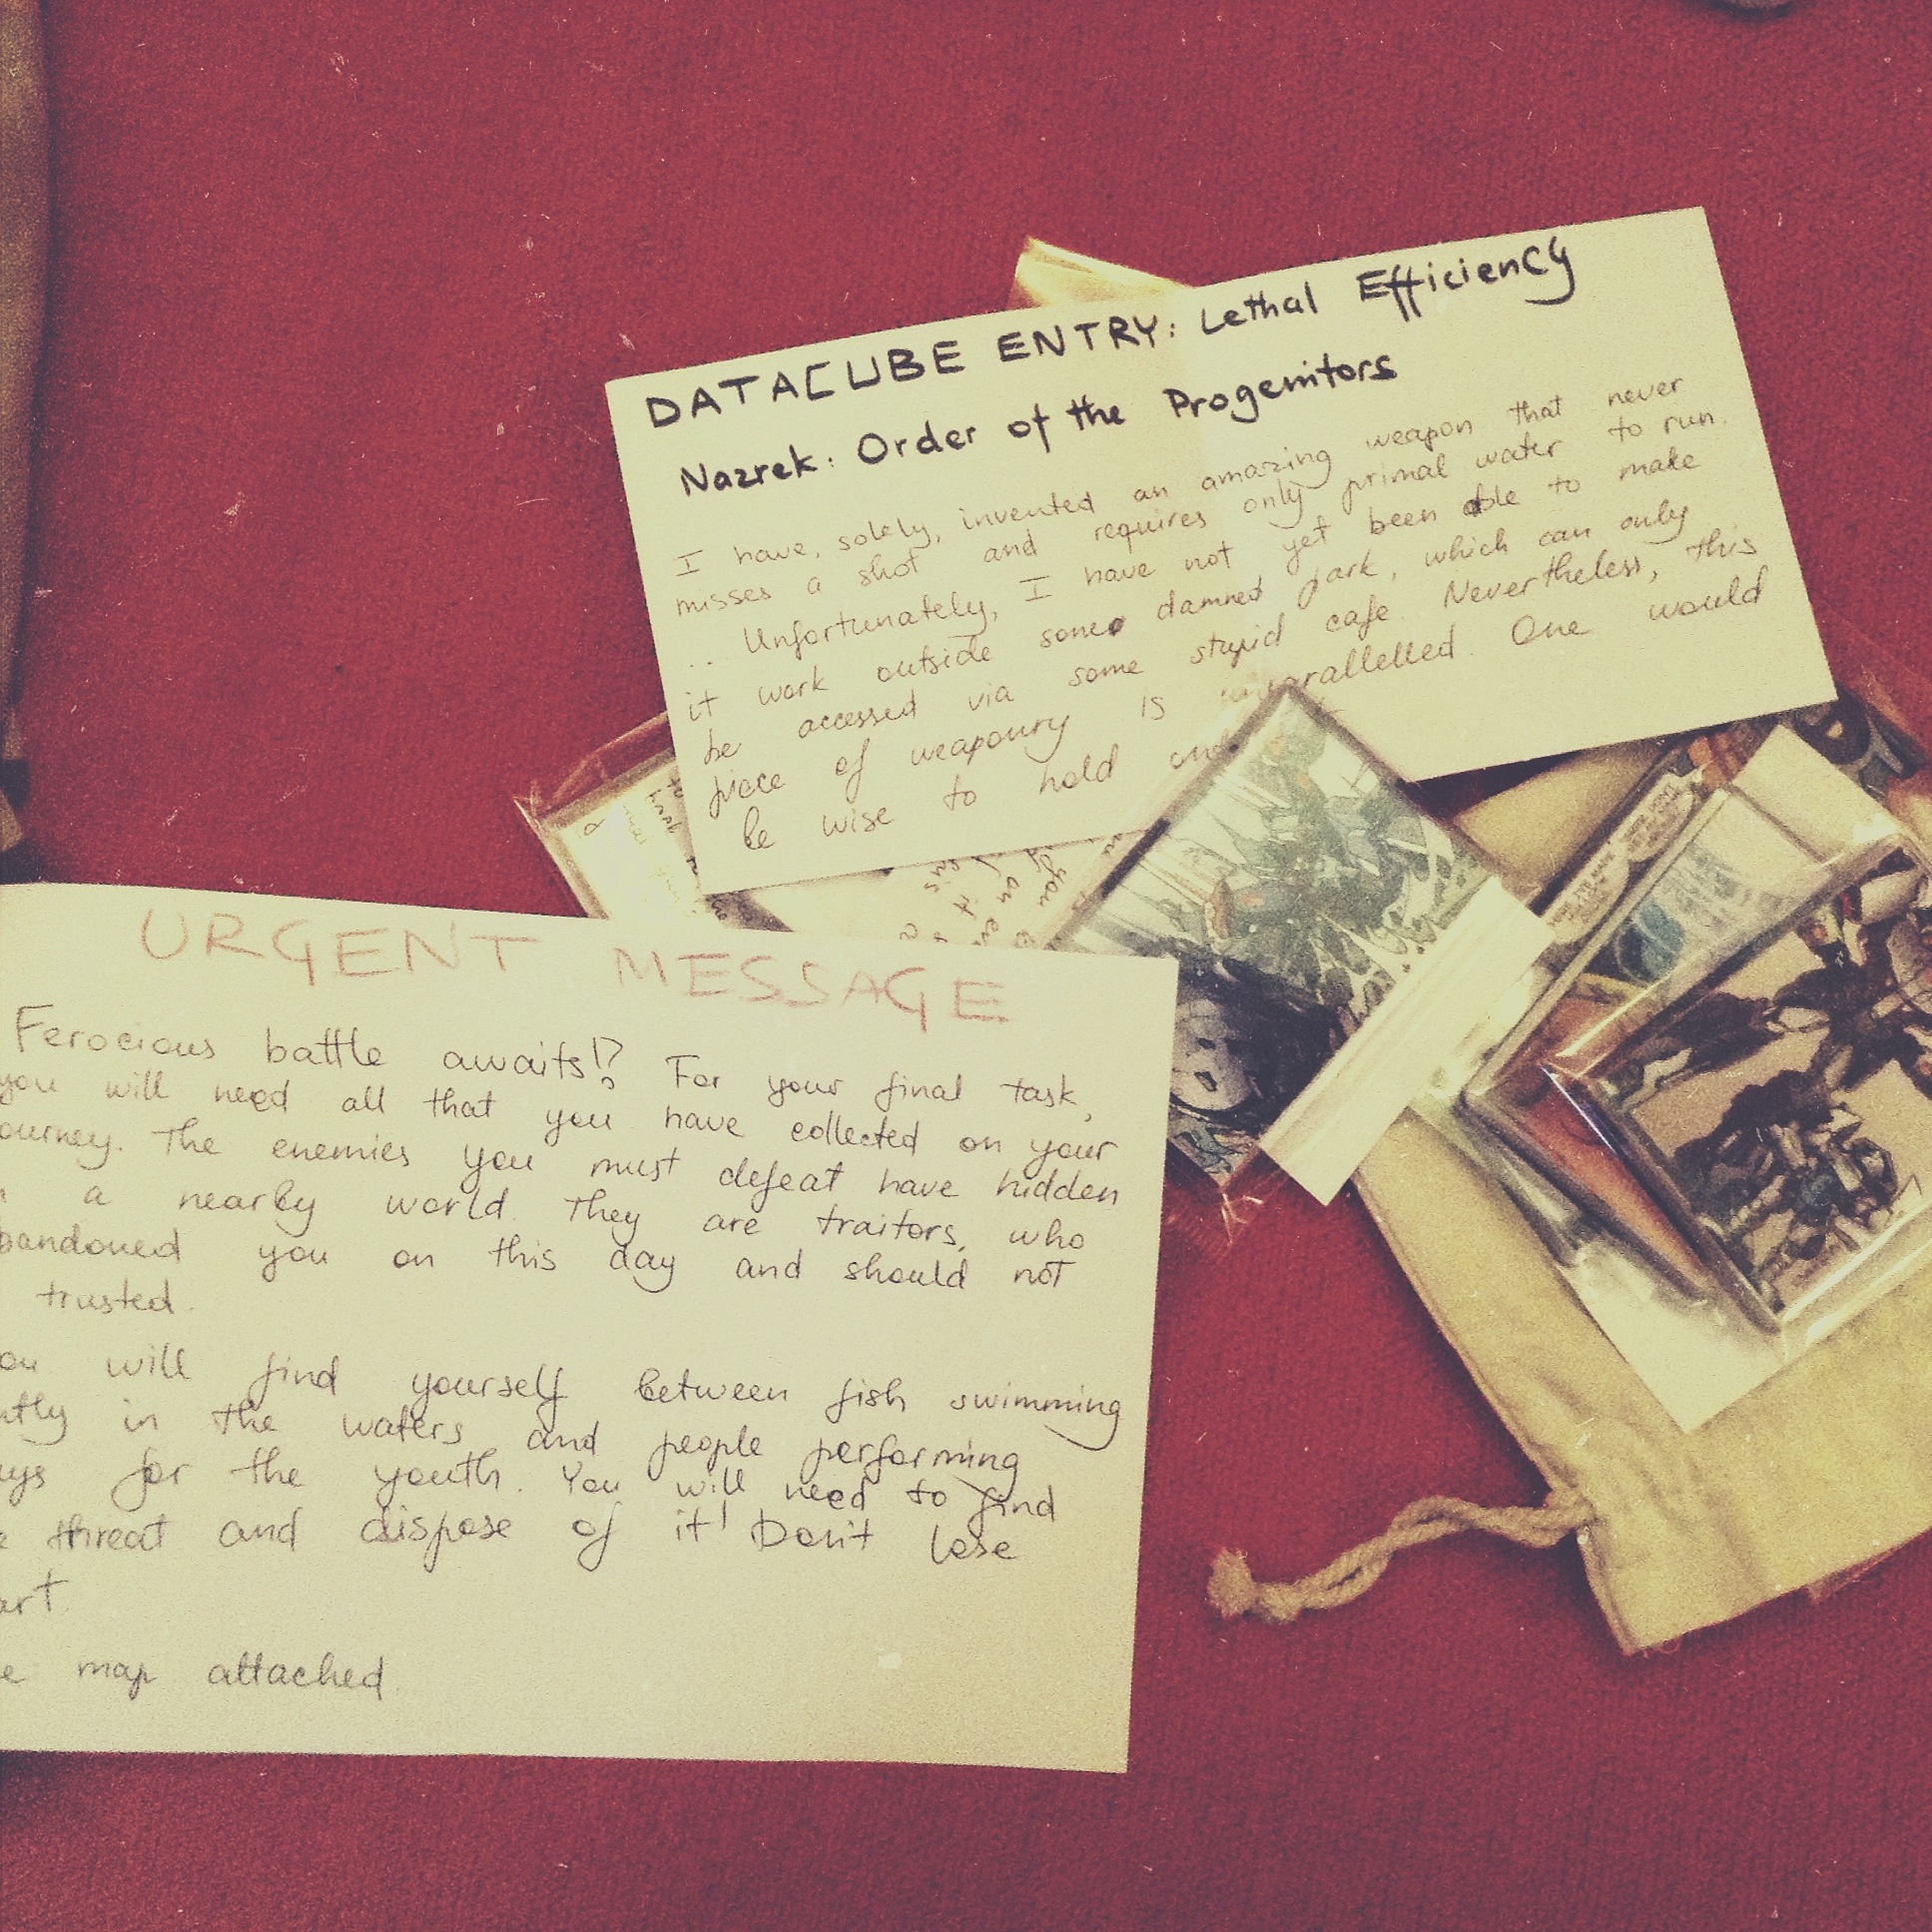 DATACUBE ENTRY: Lethal Efficiency
Nazrek: Order of the Progenitors
I have, solely, invented an amazing weapon that never
misses a shot and requires only primal water to run.
... Unfortunately, I have not yet been able to make
it work outside some damned park, which can only
be accessed via some stupid cafe. Nevertheless, this
piece of weaponry is unparallelled. One would
be wise to hold
URGENT MESSAGE
Ferocious battle awaits!? For your final task,
you will need all that you have collected on your
ourney. The enemies you must defeat have hidden
a nearby world. They are traitors, who
bandoned you on this day and should not
trusted.
ou will find yourself between fish swimming
ntly in the waters and people performing
ays for the youth. You will need to find
e threat and dispose of it! Don't lose
art.
e map attached.